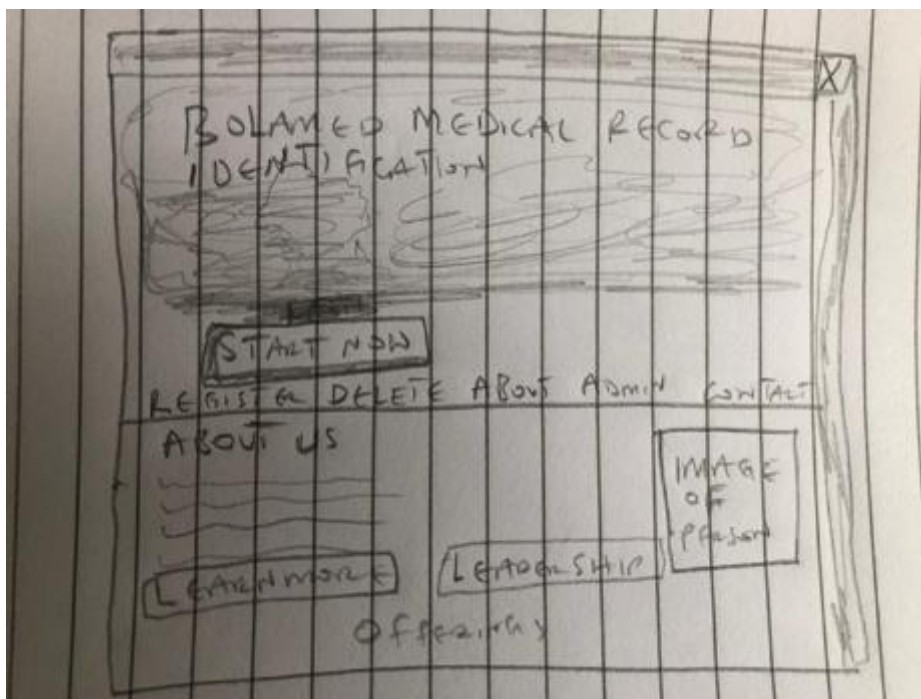 X
BOLAMED MEDICAL RECORD
IDENTIFICATION
START NOW
REGISTER DELETE ABOUT ADMIN CONTACT
ABOUT US
IMAGE
OF
PERSON
LEARN MORE
LEADERSHIP
OFFERINGS